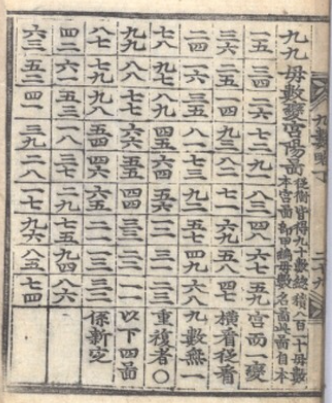 九九母數變宮陽圖
縱衡皆得九十數總積八百一十母數
本宮圖卽甲鴻母數名圖此圖自本
一五 三四 二六 七二 九一 八三 四八 六七 五九 宮而一變
三六 二五 一四 九三 八二 七一 六九 五八 四七 橫看從看
二四 一六 三五 八一 七三 九二 五七 四九 六八 九數無一
七八 九七 八九 四五 六四 五六 一二 三一 二三 重複者〇
九九 八八 七七 六六 五五 四四 三三 二二 一一 以下四圖
八七 七九 九八 五四 四六 六五 二一 一三 三二 係新定
四二 六一 五三 一八 三七 二九 七五 九四 八六
六三 五二 四一 三九 二八 一七 九六 八五 七四